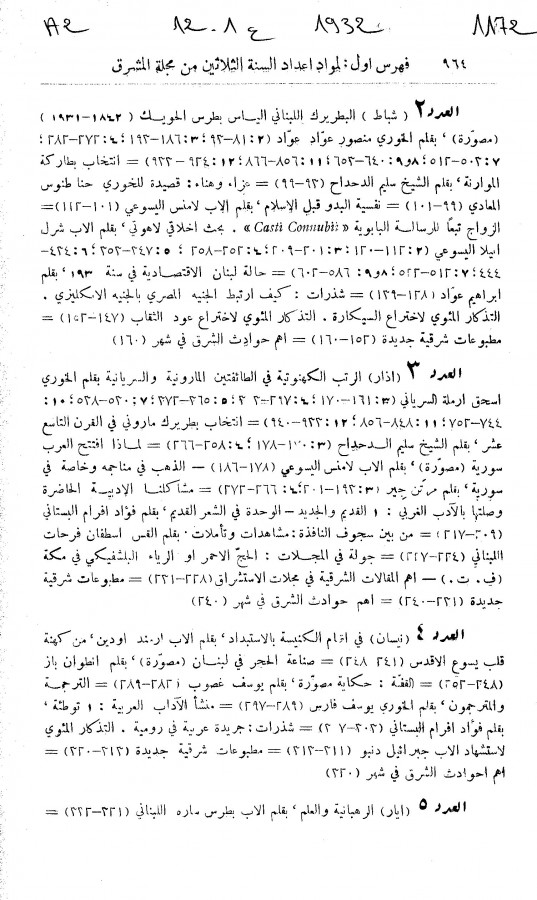 A2 12-1 ع 1932 1172
٩٦٤ فهرس اول: لمواد اعداد السنة الثلاثين من مجلة المشرق
العدد ٢ (شباط) البطريرك اللبناني الياس بطرس الحويك (١٨٤٣-١٩٣١)
(مصوّرة) ' بقلم الخوري منصور عوّاد عوّاد (٢: ٨١-٩٢؛ ٣: ١٨٦-١٩٢؛ ٤: ٢٧٢-٢٨٢؛
٧: ٥٠٣-٥١٢؛ ٨و٩: ٦٤٠-٦٥٣؛ ١١: ٨٥٦-٨٦٦؛ ١٢: ٩٢٤-٩٣٣) = انتخاب بطاركة
الموارنة ' بقلم الشيخ سليم الدحداح (٩٣-٩٩) = عزاء وهناء: قصيدة للخوري حنا طنوس
المعادي (٩٩-١٠١) = نفسية البدو قبل الاسلام ' بقلم الاب لامنس اليسوعي (١٠١-١١٢) =
الزواج تبعًا للرسالة البابوية « Casti Connubii » . بحث اخلاقي لاهوتي ' بقلم الاب شرل
ابيلا اليسوعي (٢: ١١٢-١٢٠؛ ٣: ٢٠١-٢٠٩؛ ٤: ٢٥٢-٢٥٨؛ ٥: ٣٤٧-٣٥٢؛ ٦: ٤٣٤-
٤٤٤؛ ٧: ٥١٢-٥٢٢؛ ٨و٩: ٥٨٦-٦٠٢) = حالة لبنان الاقتصادية في سنة ١٩٣٠ ' بقلم
ابراهيم عوّاد (١٢٨-١٣٩) = شذرات: كيف ارتبط الجنيه المصري بالجنيه الانكليزي .
التذكار المئوي لاختراع السيكارة . التذكار المئوي لاختراع عود الثقاب (١٤٧-١٥٢) =
مطبوعات شرقية جديدة (١٥٢-١٦٠) = اهم حوادث الشرق في شهر (١٦٠)
العدد ٣ (اذار) الرتب الكهنوتية في الطائفتين المارونية والسريانية بقلم الخوري
اسحق ارملة السرياني (٣: ١٦١-١٧٠؛ ٤: ٢٩٧- ؛ ٥: ٣٦٥-٣٧٢؛ ٧: ٥٢٠-٥٢٨؛ ١٠:
٧٤٤-٧٥٢؛ ١١: ٨٤٨-٨٥٦؛ ١٢: ٩٣٣-٩٤٠) = انتخاب بطريرك ماروني في القرن التاسع
عشر ' بقلم الشيخ سليم الدحداح (٣: ١٧٠-١٧٨؛ ٤: ٢٥٨-٢٦٦) = لماذا افتتح العرب
سورية (مصوّرة) ' بقلم الاب لامنس اليسوعي (١٧٨-١٨٦) — الذهب في مناجمه وخاصة في
سورية ' بقلم مرتن جبر (٣: ١٩٣-٢٠١؛ ٤: ٢٦٦-٢٧٢) = مشاكلنا الادبية الحاضرة
وصلتها بالأدب الغربي: ١ القديم والجديد — الوحدة في الشعر القديم ' بقلم فؤاد افرام البستاني
(٢٠٩-٢١٧) = من بين سجوف النافذة: مشاهدات وتأملات ' بقلم القس اسطفان فرحات
اللبناني (٢٢٤-٢٢٧) = جولة في المجلات: الحجّ الاحمر او الرياء البلشفيكي في مكة
(ف . ت .) — اهم المقالات الشرقية في مجلات الاستشراق (٢٢٨-٢٣١) = مطبوعات شرقية
جديدة (٢٣١-٢٤٠) = اهم حوادث الشرق في شهر (٢٤٠)
العدد ٤ (نيسان) في اتهام الكنيسة بالاستبداد ' بقلم الاب ارمند اودين ' من كهنة
قلب يسوع الاقدس (٢٤١ ٢٤٨) = صناعة الحجر في لبنان (مصوّرة) ' بقلم انطوان باز
(٢٤٨-٢٥٢) = القفّة: حكاية مصوّرة ' بقلم يوسف غصوب (٢٨٢-٢٨٩) = الترجمة
والمترجمون ' بقلم الخوري يوسف فارس (٢٨٩-٢٩٧) = منشأ الآداب العربية: ١ توطئة '
بقلم فؤاد افرام البستاني (٣٠٢-٣٠٧) = شذرات: جريدة عربية في رومية . التذكار المئوي
لاستشهاد الاب جبرائيل دنبو (٣١١-٣١٢) = مطبوعات شرقية جديدة (٣١٢-٣٢٠) =
اهم احوادث الشرق في شهر (٣٢٠)
العدد ٥ (ايار) الرهبانية والعلم ' بقلم الاب بطرس ساره اللبناني (٣٢١-٣٣٢) =